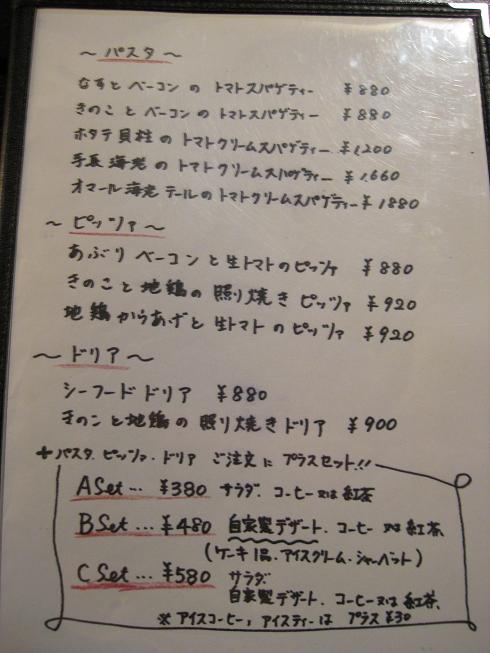 ～ パスタ ～
なすと ベーコン の トマトスパゲティー ￥880
きのこ と ベーコン の トマトスパゲティー ￥880
ホタテ 貝柱 の トマトクリームスパゲティー ￥1,200
手長 海老 の トマトクリームスパゲティー ￥1,660
オマール 海老 テールの トマトクリームスパゲティー ￥1880
～ ピッツァ ～
あぶり ベーコン と 生トマトのピッツァ ￥880
きのこと 地鶏 の 照り焼き ピッツァ ￥920
地鶏 からあげと 生トマト の ピッツァ ￥920
～ ドリア ～
シーフード ドリア ￥880
きのこ と 地鶏 の 照り焼き ドリア ￥900
+ パスタ. ピッツァ・ドリア ご注文 に プラスセット!!
A Set … ￥380 サラダ. コーヒー 又は 紅茶
B Set … ￥480 自家製デザート. コーヒー 又は 紅茶.
(ケーキ1品.アイスクリーム・シャーベット)
C Set … ￥580 サラダ.
自家製デザート. コーヒー又は 紅茶.
※ アイスコーヒー, アイスティー は プラス ￥30